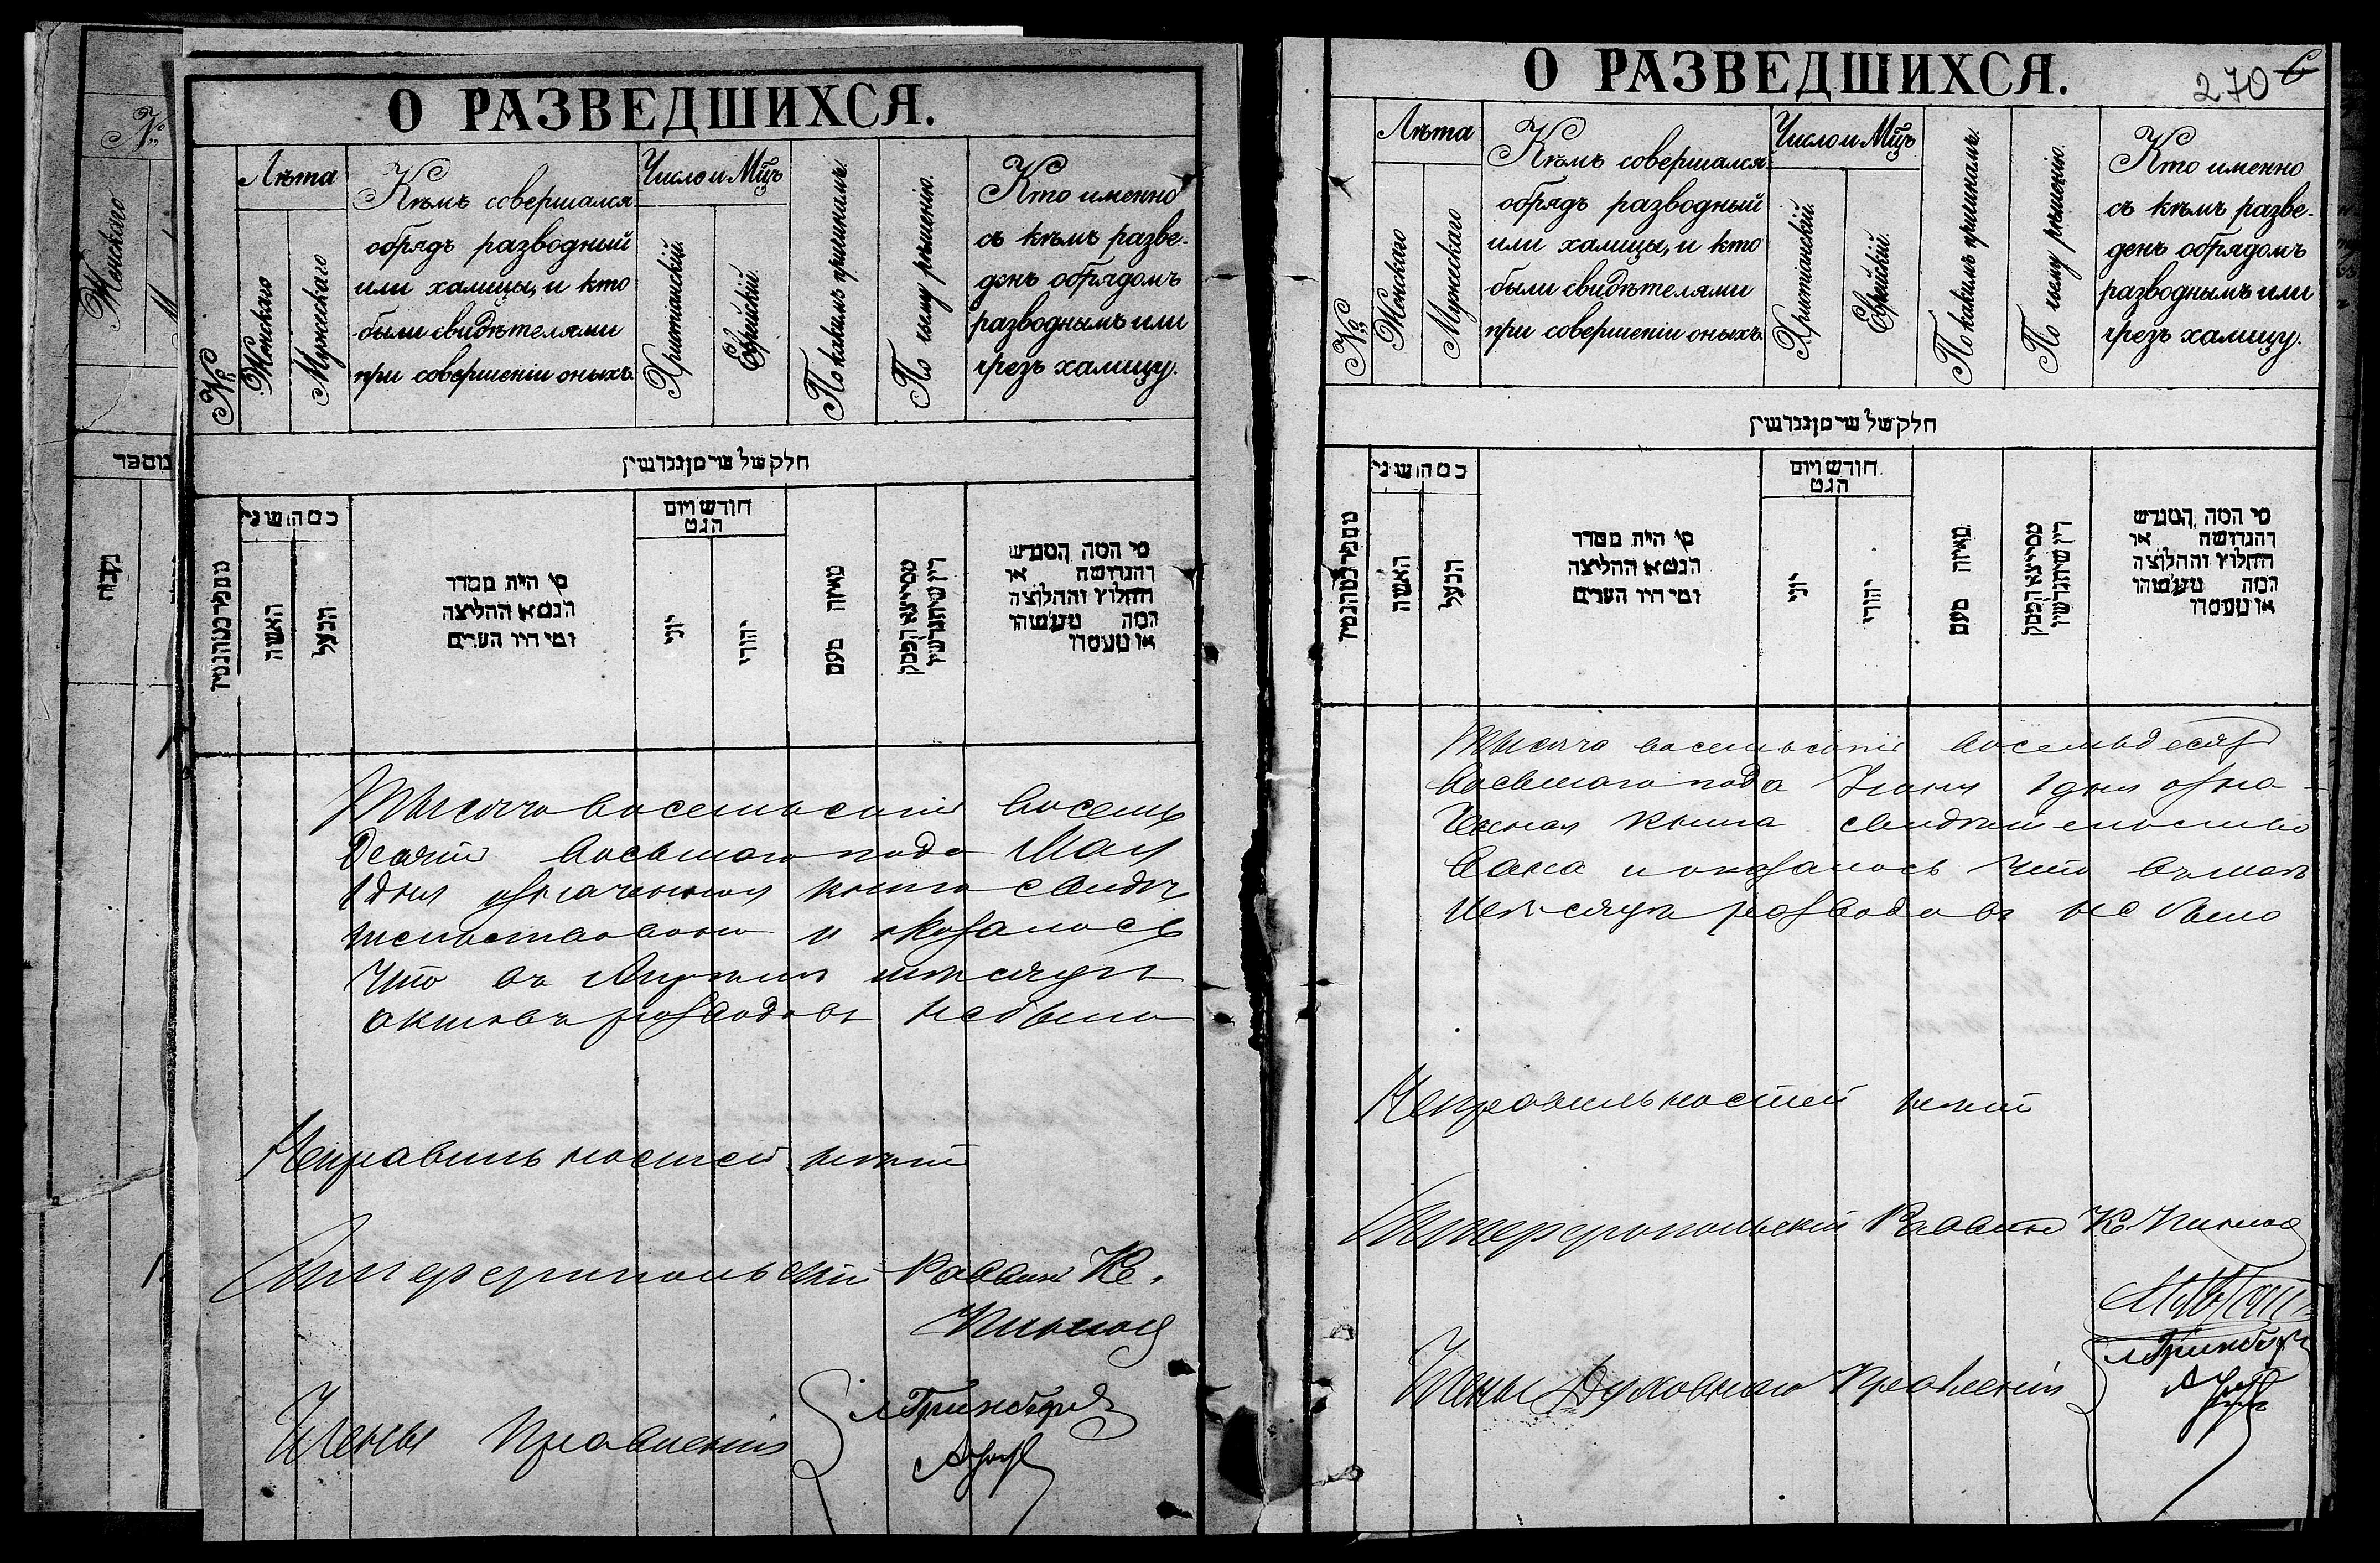 №
Женскаго
מספר
נקבה
О РАЗВЕДШИХСЯ.
№
Лѣта
Женскаго
Мужескаго
Кѣмъ совершался
обрядъ разводный
или халицы, и кто
были свидѣтелями
при совершеніи оныхъ.
Число и Мѣцъ
Христіанскій.
Еврейскій.
По какимъ причинамъ.
По чьему рѣшенію.
Кто именно
съ кѣмъ разве-
денъ обрядомъ
разводнымъ или
чрезъ халицу.
חלק של
כמה שני
האשה
הבעל
מי היה מסדר
הגט או החליצה
ומי היו העדים
חודש ויום
הגט
יוני
יהודי
מאיזה טעם
מי המה המגרש
והגרושה או
החלוץ והחלוצה
המה
Тысяча восемьсотъ восемь
десятъ восьмого года Мая
1 дня означенная книга свидѣ
тельствована и оказалось
что въ Апрѣлѣ мѣсяцѣ
актовъ разводовъ небыло
Неправильностей нѣтъ
Симферопольскій Раввинъ К.
Члены Правленія
Гринберг
О РАЗВЕДШИХСЯ.
270
6
№
Лѣта
Женскаго
Мужескаго
Кѣмъ совершался
обрядъ разводный
или халицы, и кто
были свидѣтелями
при совершеніи оныхъ.
Число и Мѣцъ
Христіанскій.
Еврейскій.
По какимъ причинамъ.
По чьему рѣшенію.
Кто именно
съ кѣмъ разве-
денъ обрядомъ
разводнымъ или
чрезъ халицу.
חלק של
כמה שני
האשה
הבעל
מי היה מסדר
הגט או החליצה
ומי היו העדים
חודש ויום
הגט
יוני
יהודי
מאיזה טעם
מי המה המגרש
והגרושה או
החלוץ והחלוצה
המה
Тысяча восемьсотъ восемьдесятъ
восьмого года Іюня 1 дня озна-
ченная книга свидѣтельство
вана и оказалось что въ маѣ
мѣсяцѣ разводовъ не было
Неправильностей нѣтъ
Симферопольскій Раввинъ К.
Члены Духовнаго Правленія
Гринберг